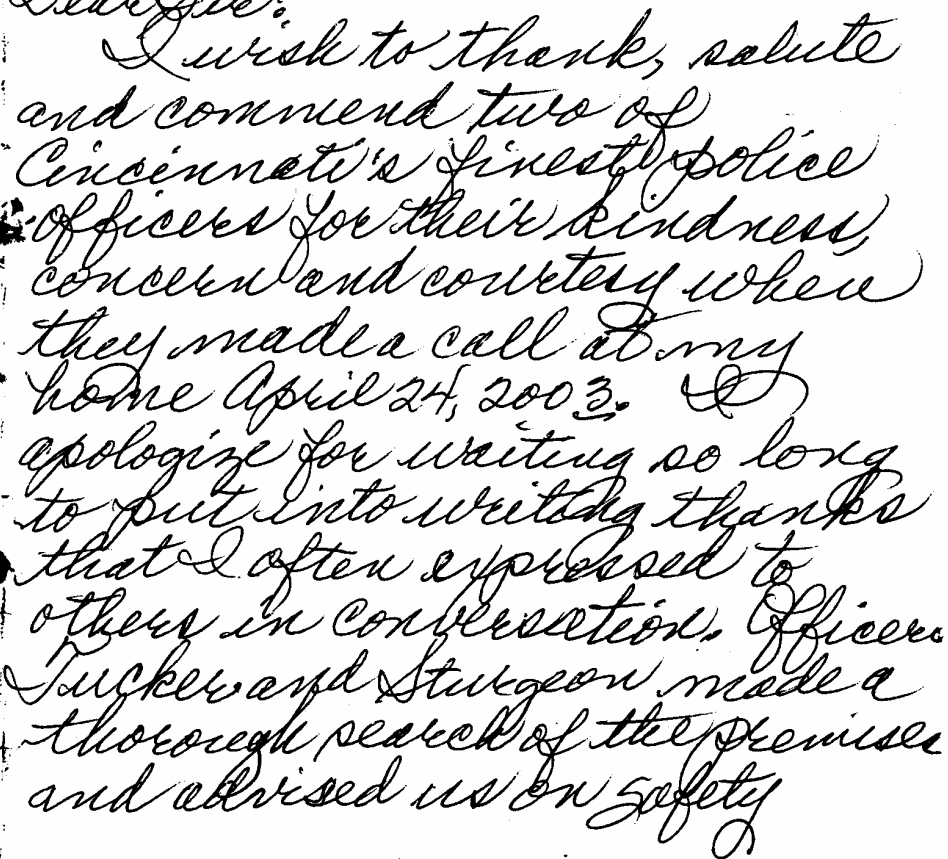 Dear Sir:
I wish to thank, salute
and commend two of
Cincinnati's finest police
officers for their kindness,
concern and courtesy when
they made a call at my
home April 24, 2003. I
apologize for waiting so long
to put into writing thanks
that I often expressed to
others in conversation. Officers
Tucker and Sturgeon made a
thorough search of the premises
and advised us on safety